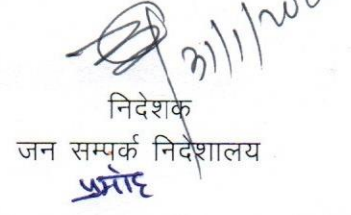 31/1/20
निदेशक
जन सम्पर्क निदेशालय
प्रमोद